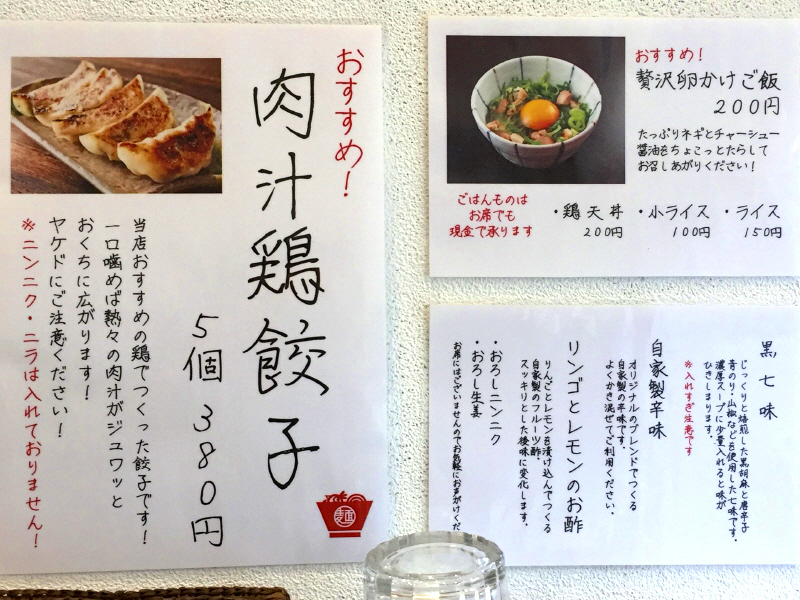 おすすめ!
肉汁鶏餃子
5個 380円
当店おすすめの鶏でつくった餃子です!
一口噛めば熱々の肉汁がジュワッと
おくちに広がります!
ヤケドにご注意ください!
※ニンニク・ニラは入れておりません!
麺
おすすめ!
贅沢卵かけご飯
200円
たっぷりネギとチャーシュー
醤油をちょこっとたらして
お召しあがりください!
ごはんものは
お席でも
現金で承ります
・鶏天丼 ・小ライス ・ライス
200円 100円 150円
黒七味
じっくりと焙煎した黒胡麻と唐辛子
青のり・山椒などを使用した七味です。
濃厚スープに少量入れると味が
ひきしまります。
※入れすぎ注意です
自家製辛味
オリジナルのブレンドでつくる
自家製の辛味です。
よくかき混ぜてご利用ください。
リンゴとレモンのお酢
りんごとレモンを漬け込んでつくる
自家製のフルーツ酢。
スッキリとした後味に変化します。
・おろしニンニク
・おろし生姜
お席にはございませんのでお気軽にお声がけくだ